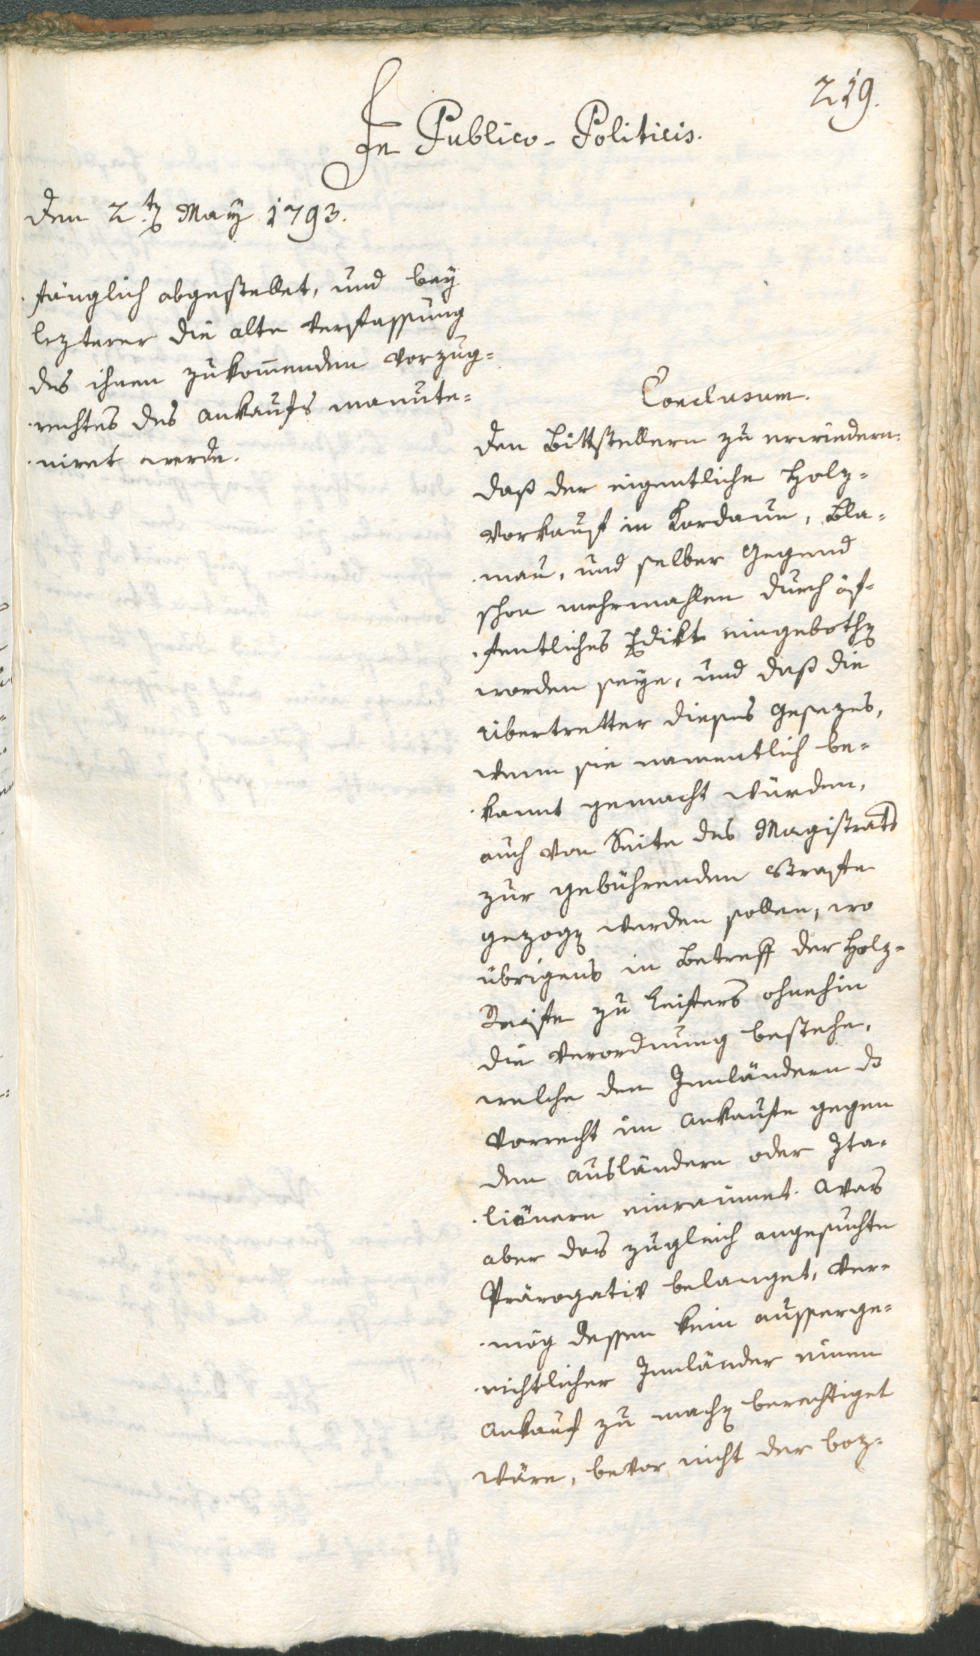 219.
In Publico-Politicis.
Den 2.t May 1793.
fänglich abgestellet, und bey
lezterer die alte Verfassung
des ihnen zukom̅enden Vorzug=
rechtes des Ankaufs manute=
niret werde.
Conclusum.
Den Bittstellern zu erwiedern:
daß der eigentliche Holz=
Vorkauf in Kardaun, Blu=
mau, und selber Gegend
schon mehrmahlen durch öf=
fentliches Edikt eingebothen
worden seye, und daß die
Übertretter dieses Gesezes,
wenn sie namentlich be=
kannt gemacht würden,
auch von Seite des Magistrats
zur gebührenden Strafe
gezogen werden sollen, wo
übrigens in Betreff der Holz=
Reife zu Leifers ohnehin
die Verordnung bestehe,
welche den Innländern das
Vorrecht im Ankaufe gegen
den Ausländern oder Ita=
liänern einraumet. Was
aber das zugleich angesuchte
Prärogativ belanget, ver=
mög dessen kein ausserge=
richtlicher Innländer einen
Ankauf zu machen berechtiget
wäre, bevor nicht der boz=